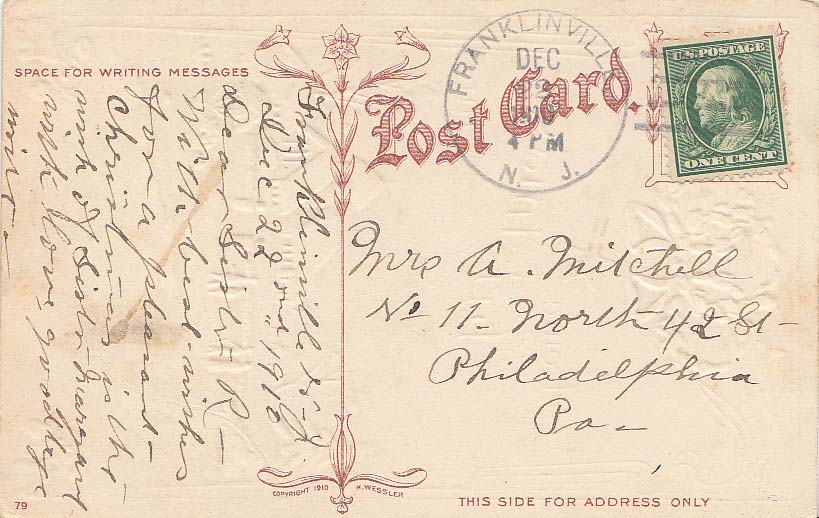 SPACE FOR WRITING MESSAGES
Post Card.
FRANKLINVILLE
DEC
22
4 PM
N. J.
U.S. POSTAGE
ONE CENT
Franklinville N. J.
Dec 22 nd 1910
Dear Sister R—
With best wishes
for a pleasant
Christmas is the
wish of Sister Margaret
with love goodbye
Mrs A. Mitchell
No 11- North 42 St-
Philadelphia
Pa-
COPYRIGHT 1910 H. WESSLER
79
THIS SIDE FOR ADDRESS ONLY